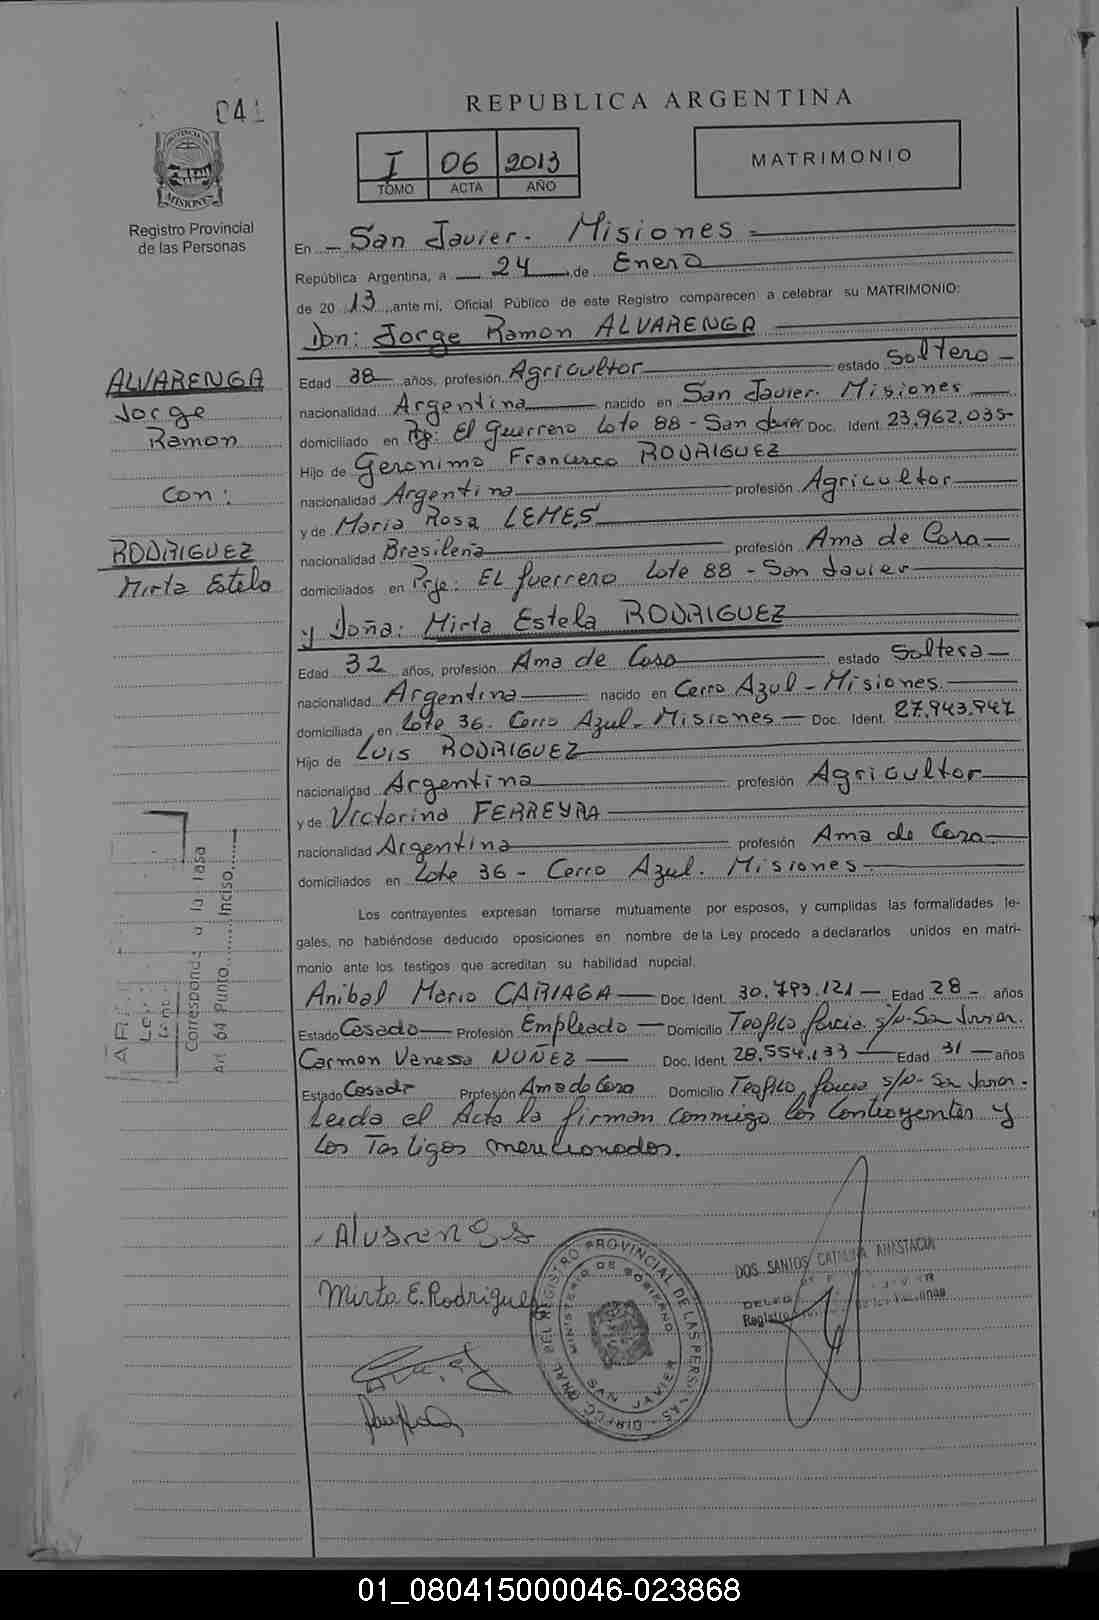 REPUBLICA ARGENTINA
041
I 06 2013
TOMO ACTA AÑO
MATRIMONIO
PROVINCIA DE MISIONES
Registro Provincial
de las Personas
En San Javier. Misiones
República Argentina, a 24 de Enero
de 2013, ante mi, Oficial Público de este Registro comparecen a celebrar su MATRIMONIO:
Don: Jorge Ramon ALVARENGA
ALVARENGA
Jorge
Ramon
Con:
RODRIGUEZ
Mirta Estela
Edad 38 años, profesión Agricultor estado Soltero
nacionalidad Argentina nacido en San Javier. Misiones
domiciliado en El Guerrero Lote 88 - San Javier Doc. Ident. 23.962.035
Hijo de Geronimo Francisco RODRIGUEZ
nacionalidad Argentina profesión Agricultor
y de Maria Rosa LEMES
nacionalidad Brasileña profesión Ama de Casa
domiciliados en Pje: EL Guerrero Lote 88 - San Javier
y Doña: Mirta Estela RODRIGUEZ
Edad 32 años, profesión Ama de Casa estado Soltera
nacionalidad Argentina nacido en Cerro Azul - Misiones
domiciliada en Lote 36. Cerro Azul - Misiones Doc. Ident. 27.943.947
Hijo de Luis RODRIGUEZ
nacionalidad Argentina profesión Agricultor
y de Victorina FERREYRA
nacionalidad Argentina profesión Ama de Casa
domiciliados en Lote 36 - Cerro Azul. Misiones
Corresponde a la Tasa
Art. 64 Punto Inciso
Los contrayentes expresan tomarse mutuamente por esposos, y cumplidas las formalidades le-
gales, no habiéndose deducido oposiciones en nombre de la Ley procedo a declararlos unidos en matri-
monio ante los testigos que acreditan su habilidad nupcial.
Anibal Mario CARIAGA Doc. Ident. 30.793.121 Edad 28 años
Estado Casado Profesión Empleado Domicilio Teofilo s/n - San Javier.
Carmen Vanessa NUÑEZ Doc. Ident. 28.554.133 Edad 31 años
Estado Casada Profesión Ama de Casa Domicilio Teofilo s/n - San Javier.
Leida el Acta la firman conmigo los Contrayentes y
los Testigos mencionados.
Alvarenga
Mirta E. Rodriguez
DIRECC. GRAL. DEL REGISTRO PROVINCIAL DE LAS PERSONAS
MINISTERIO DE GOBIERNO
SAN JAVIER
DOS SANTOS CATALINA ANASTACIA
01_080415000046-023868